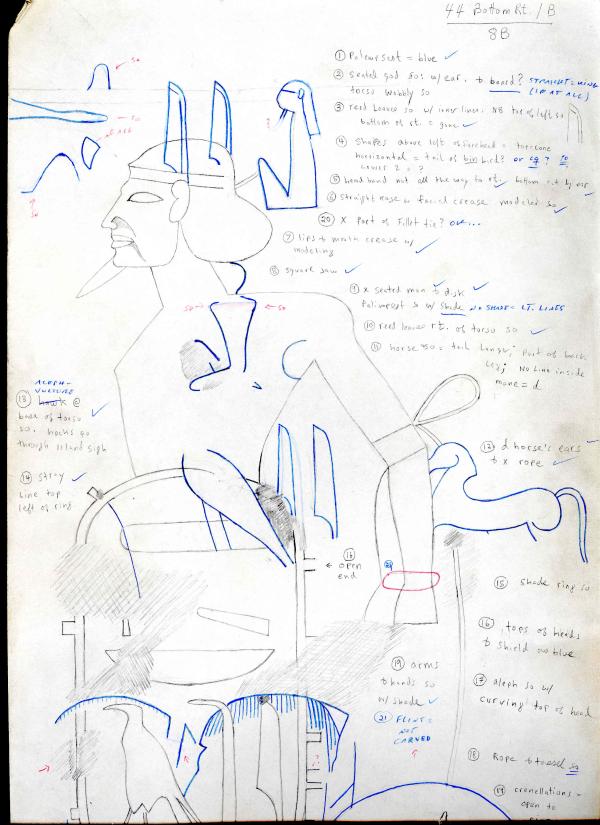 44 Bottom Rt. / B
8B
① Palimpsest = blue ✓
② seated god so: w/ ear. + beard? STRAIGHT = WING
torso wobbly so (IF AT ALL)
③ reed leaves so w/ inner lines. NB top of left so
bottom of rt. = gone ✓
④ shapes above left of forehead =
horizontal = tail of big bird? or eg? so
⑤ head band not all the way to rt. bottom cut by ear ✓
⑥ straight nose w/ facial crease modeled so ✓
⑳ x part of Fillet tie? OK...
⑦ lips + mouth crease w/
modeling ✓
⑧ square saw ✓
⑨ x seated man + disk ✓
Palimpsest so w/ shade NO SHADE = LT. LINES
⑩ reed leaves rt. of torso so ✓
⑪ horse so = tail longer; Part of back
leg; No Line inside
mane = d
ALEPH-
VULTURE
⑬ hawk @
base of torso
so. hocks go
through island sign
⑫ d horse's ears
+ x rope ✓
⑭ stray ✓
line top
left of ring
⑱ open
end
⑮ shade ring so
⑯ tops of heads
+ shield now blue
⑰ aleph so w/
curving top of head
⑲ arms
+ hands so
w/ shade ✓
㉑ FLINT =
NOT
CARVED
⑱ Rope + tassel so
⑲ crenellations =
open to
so
so
IF ALL
so
so
so